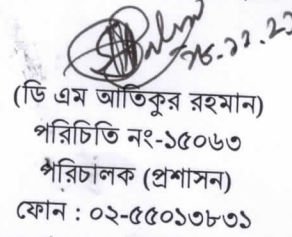 (ডি এম আতিকুর রহমান)
পরিচিতি নং-১৫০৬৩
পরিচালক (প্রশাসন)
ফোন : ০২-৫৫০১৩৮৩১